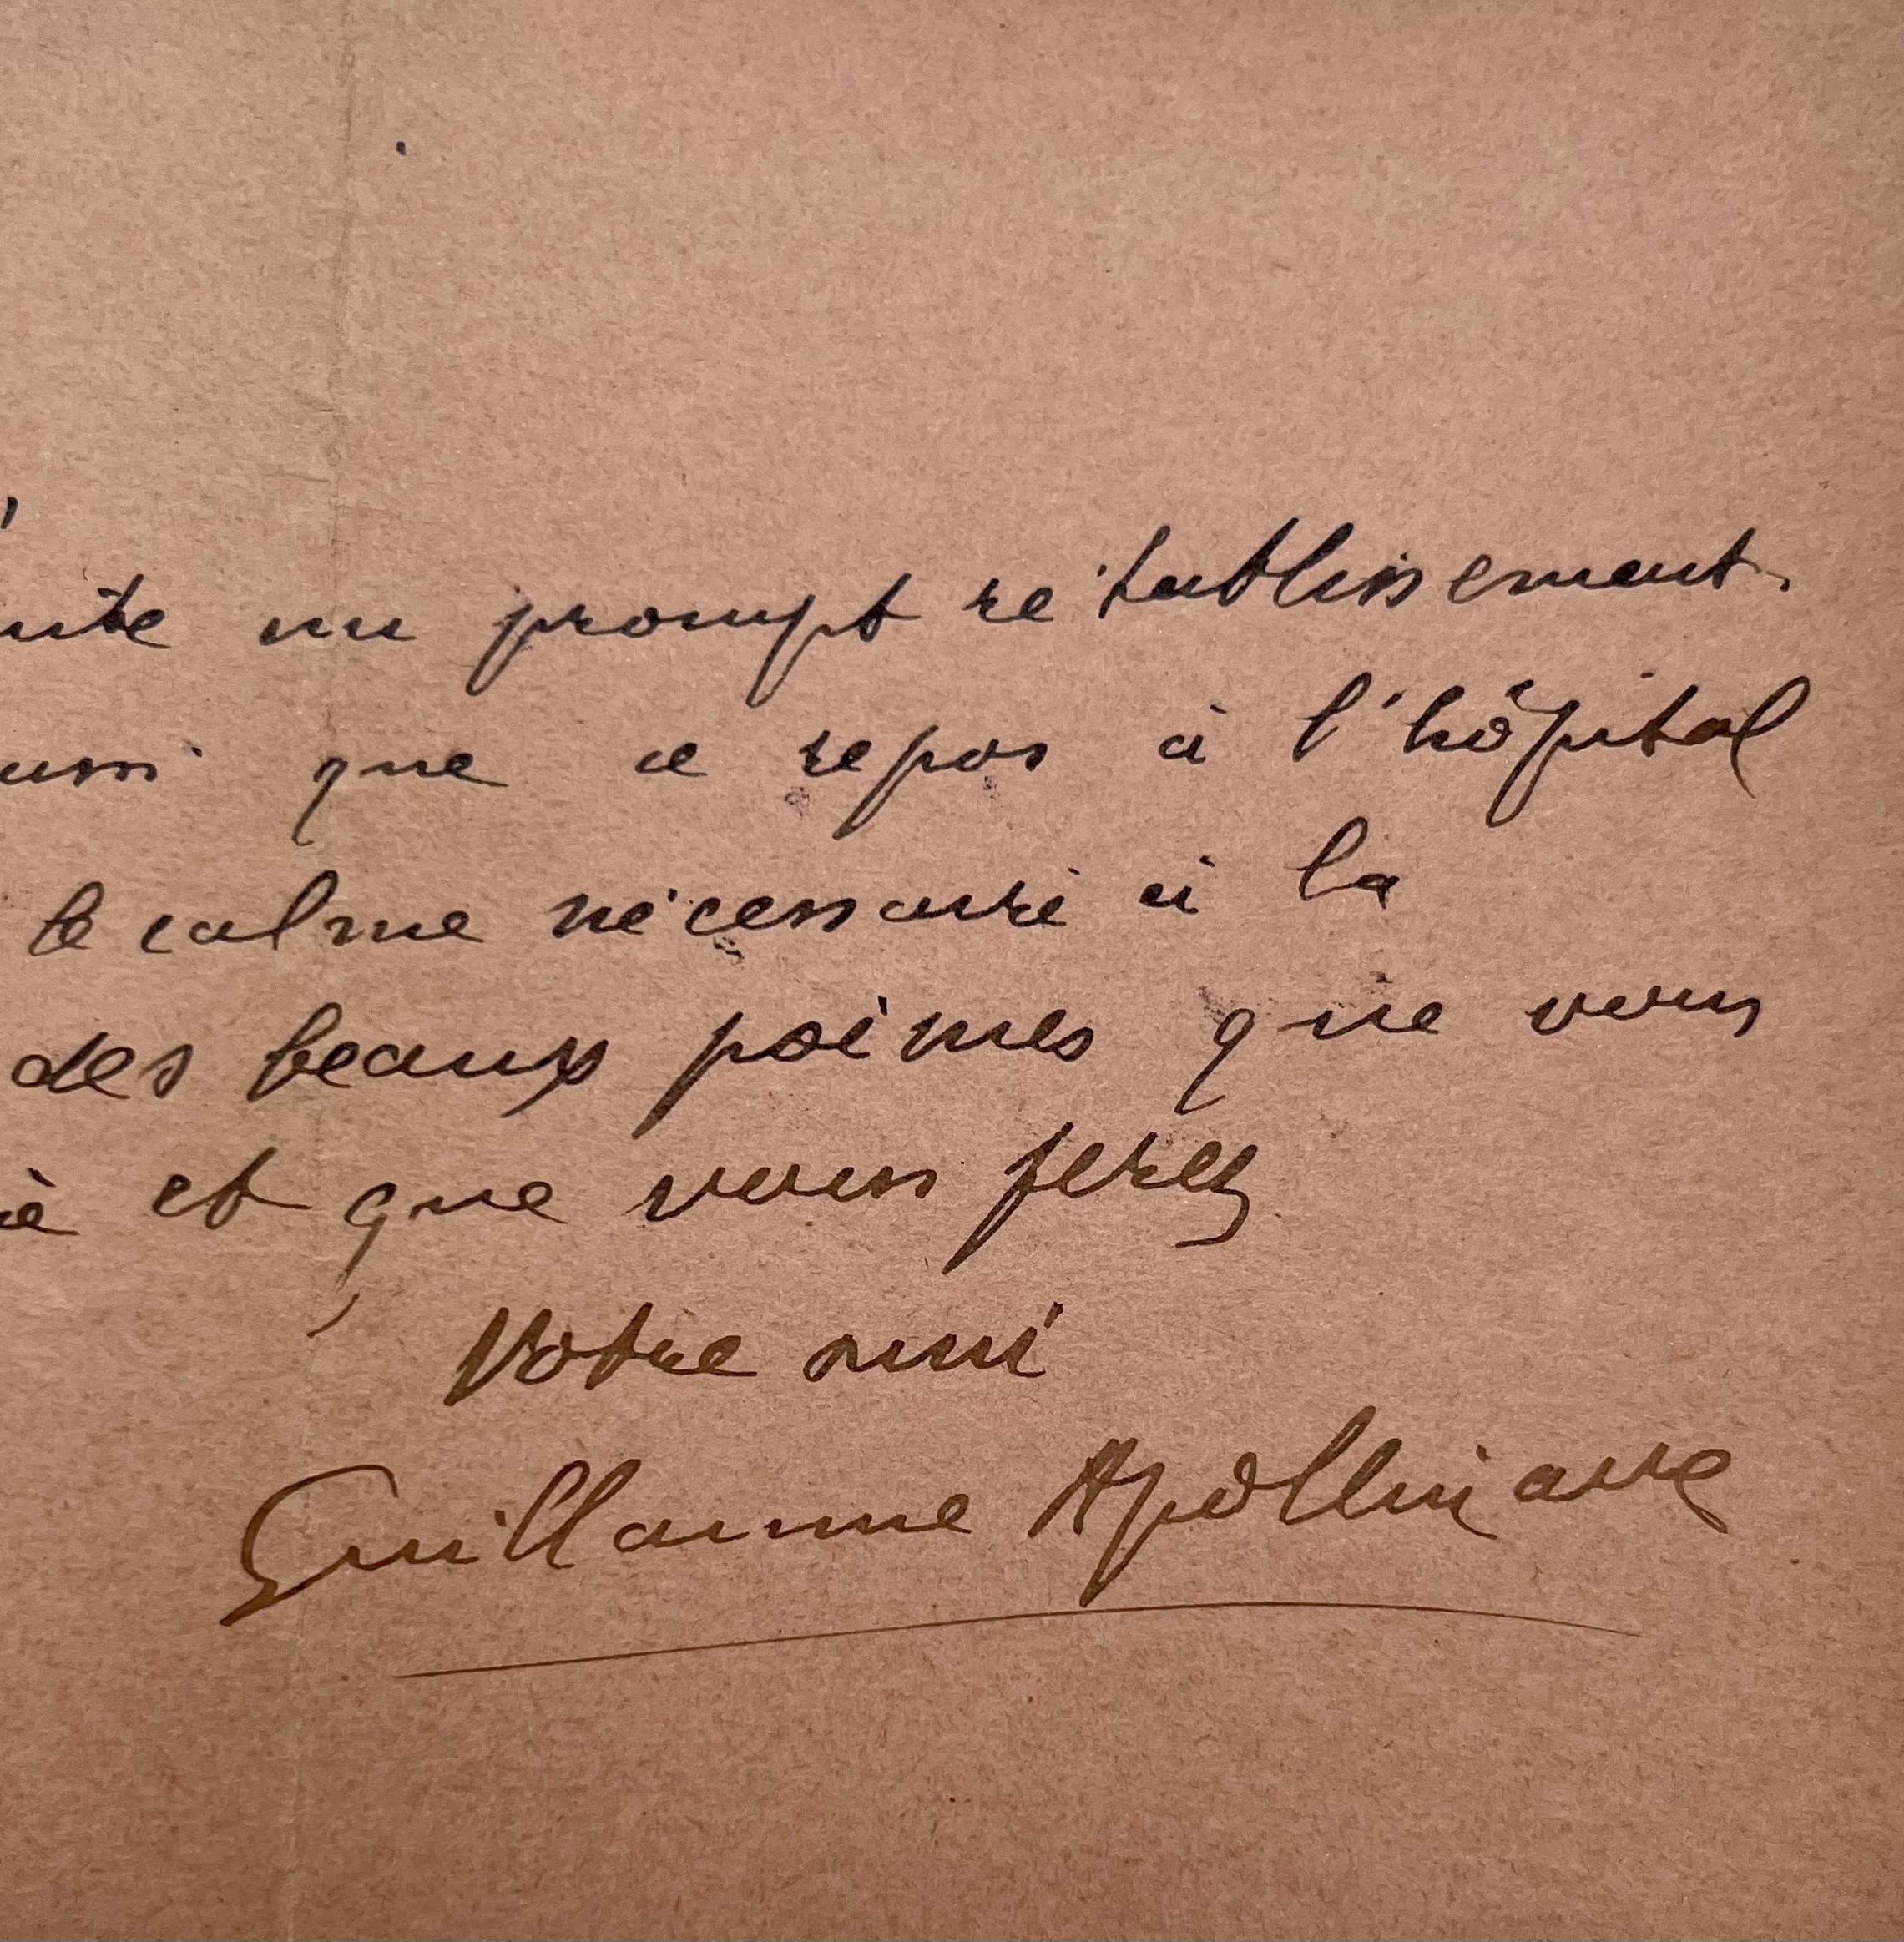 un prompt rétablissement.
que ce repos à l'hôpital
le calme nécessaire à la
des beaux poèmes que vous
et que vous ferez
Votre ami
Guillaume Apollinaire